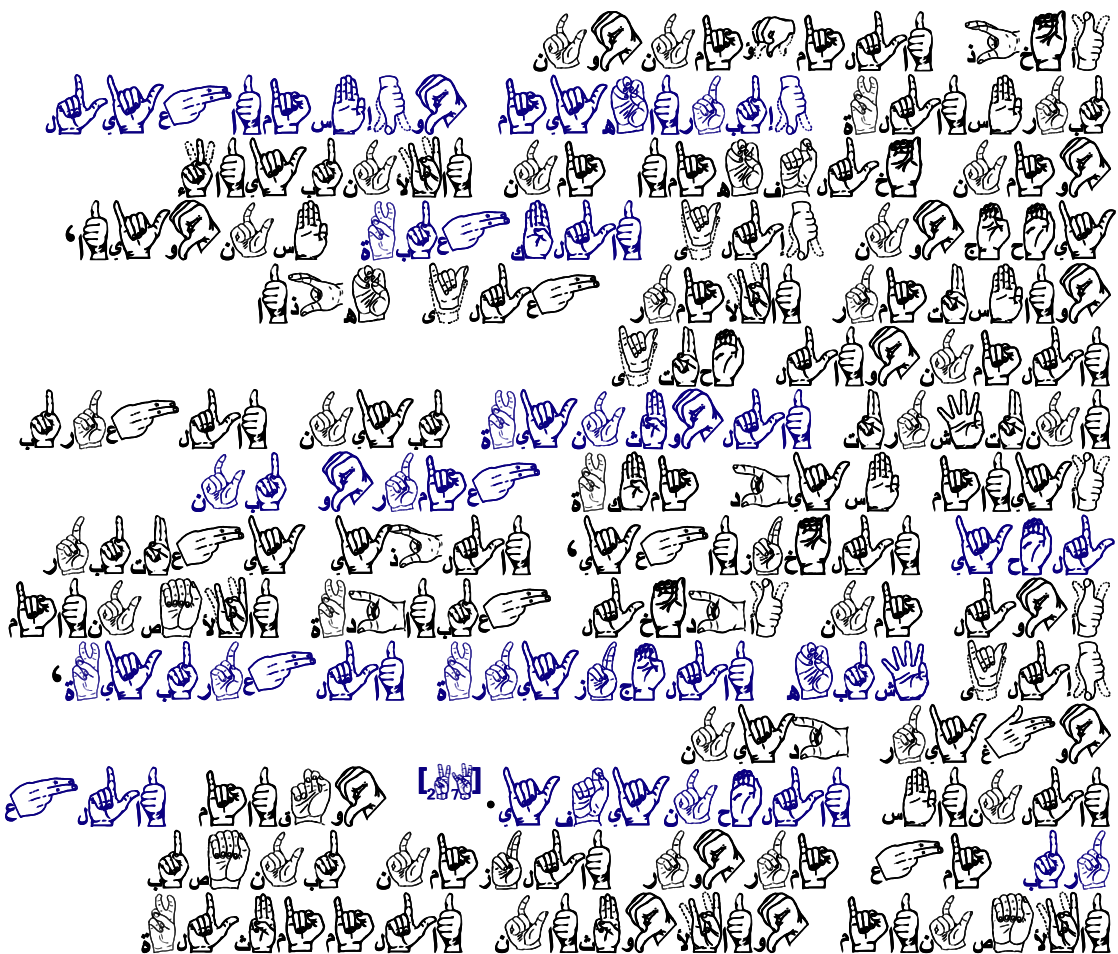 أخذ المؤمنون
برسالة إبراهيم وإسماعيل
ومن خلفهما من الانبياء
يحجون إلى الكعبة سنويا،
واستمر الامر على هذا
المنوال حتى
انتشرت الوثنية بين العرب
أيام سيد مكة عمرو بن
لحي الخزاعي، الذي يعتبر
أول من أدخل عبادة الاصنام
إلى شبه الجزيرة العربية،
وغير دين
الناس الحنيفي.[27] وقام الع
رب مع مرور الزمن بنصب
الاصنام والاوثان الممثلة